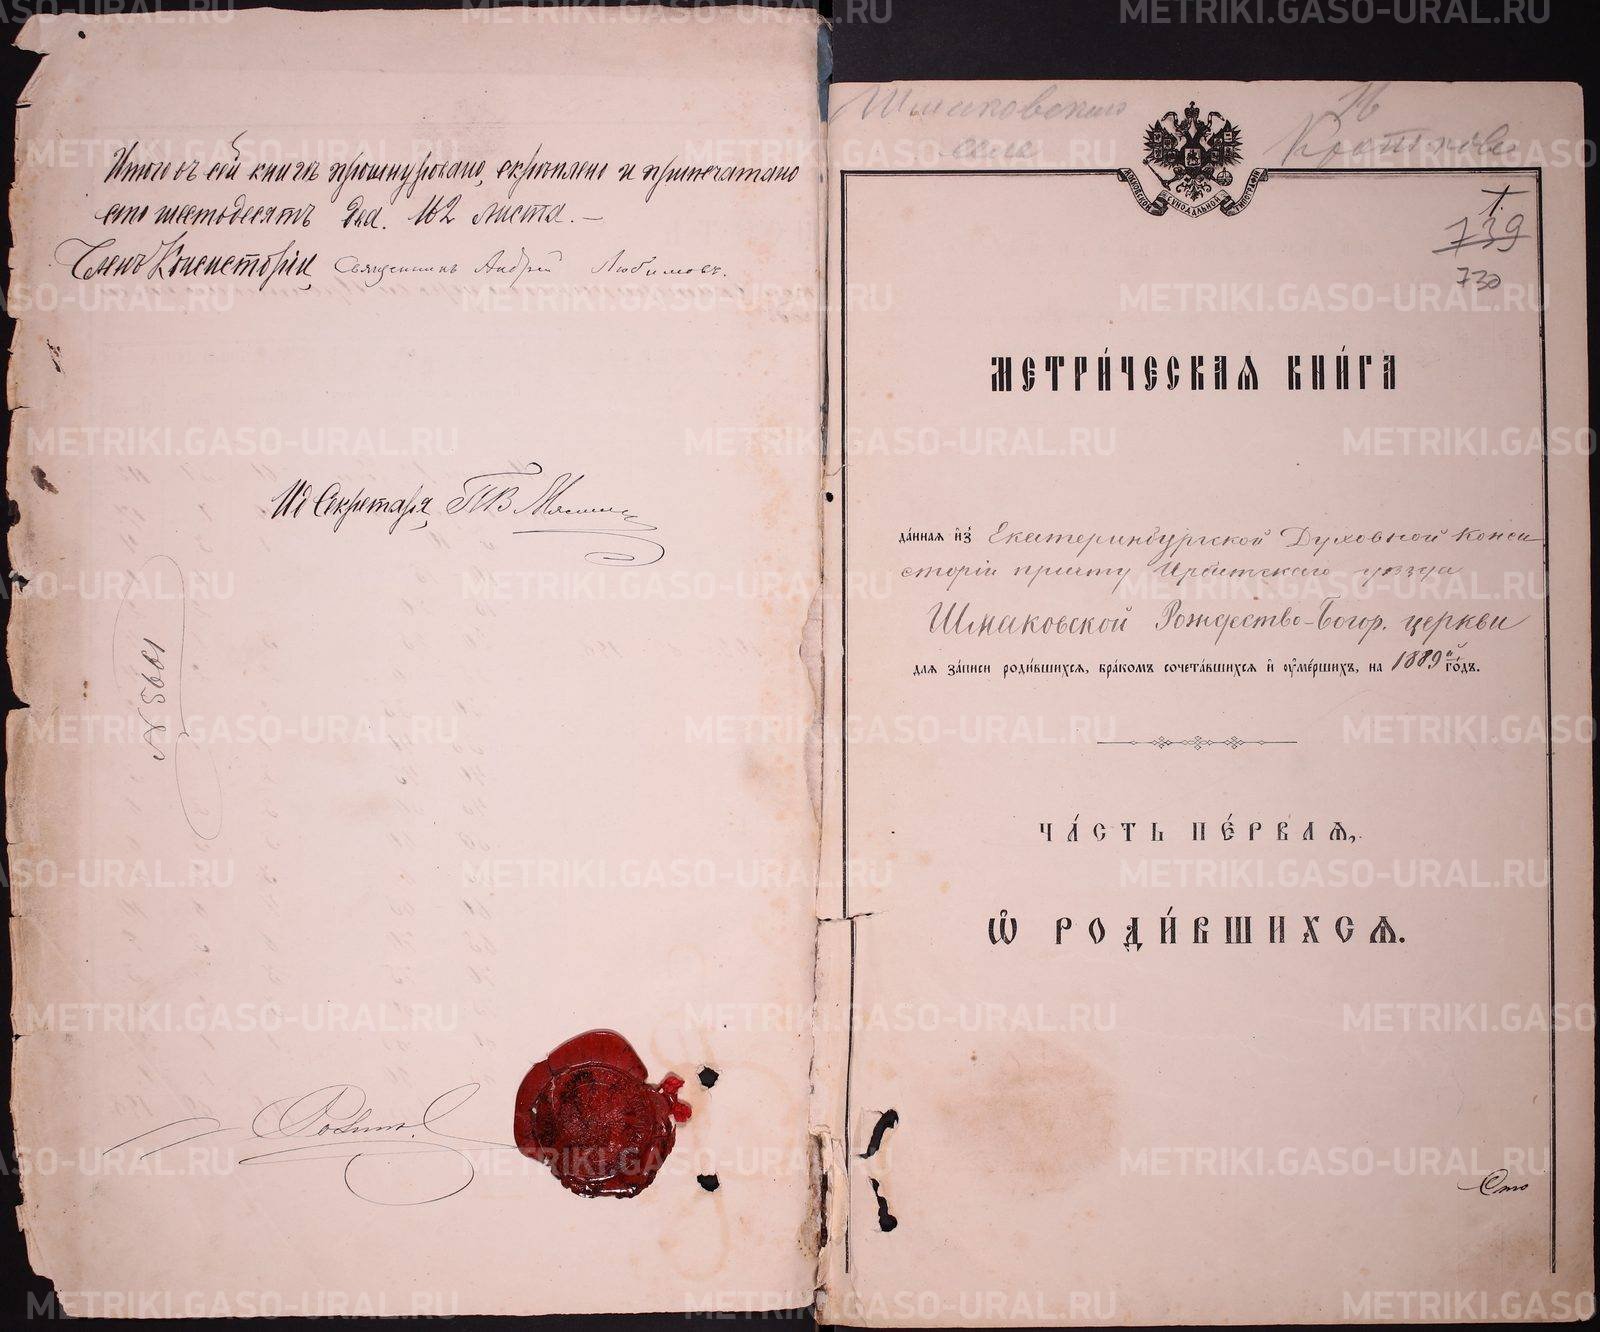 Итого въ сей книгѣ прошнуровано, скрѣплено и припечатано
сто шестьдесятъ два. 162 листа. –
Членъ Консисторіи, Священникъ Андрей Любимовъ.
Ид Секретаря,
№ 5601
Шмаковского
села
16
МОСКОВСКОЙ СѴНОДАЛЬНОЙ ТИПОГРАФІИ
1.
739
730
МЕТРИ́ЧЕСКАѦ КНИ́ГА
да́ннаѧ и҆з̾ Екатеринбургской Духовной Конси
сторіи причту Ирбитскаго уѣзда
Шмаковской Рождество-Богор. церкви
длѧ за́писи роди́вшихсѧ, бра́комъ сочета́вшихсѧ и҆ ᲂу҆ме́ршихъ, на 1889й го́дъ.
ЧА́СТЬ ПЕ́РВАѦ,
Ѽ РОДИ́ВШИХСѦ.
Сто
METRIKI.GASO-URAL.RU